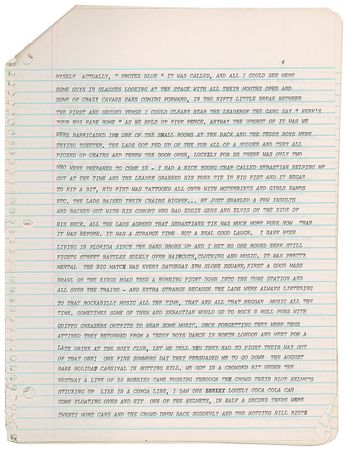 4
MYSELF ACTUALLY, " PROTEX BLUE " IT WAS CALLED, AND ALL I COULD SEE WERE
SOME GUYS IN GLASSES LOOKING AT THE STAGE WITH ALL THEIR MOUTHS OPEN AND
SOME OF CRAZY CAVARS FANS COMING FORWARD, IN THE NIFTY LITTLE BREAK BETWEEN
THE FIRST AND SECOND VERSE I COULD CLEARY HEAR THE LEADEROF THE GANG SAY " HERE'S
YOUR BUS FARE HOME " AS WE HELD UP FIVE PENCE. ANYWAY THE UPSHOT OF IT WAS WE
WERE BARRICADED IN ONE OF THE SMALL ROOMS AT THE BACK AND THE TEDDY BOYS WERE
TRYING TO ENTER. THE LADS GOT FED UP OF THE FUN ALL OF A SUDDEN AND THEY ALL
PICKED UP CHAIRS AND THREW THE DOOR OPEN, LUCKELY FOR US THERE WAS ONLY TWO
WHO WERE PREPARED TO COME IN - I HAD A NICE YOUNG CHAP CALLED SEBASTIAN HELPING ME
OUT AT THE TIME AND THE LEADER GRABBED HIS PUNK TIE IN HIS FIST AND IT BEGAN
TO RIP A BIT, HIS FIST WAS TATTOOED ALL OVER WITH MOTERBIKES AND GIRLS NAMES
ETC. THE LADS RAISED THEIR CHAIRS HIGHER... HE JUST SNARLED A FEW INSULTS
AND BACKED OUT WITH HIS COHORT WHO HAD EDDIE GENE AND ELVIS ON THE SIDE OF
HIS NECK. ALL THE LADS AGREED THAT SEBASTIANS TIE WAS MUCH MORE PUNK NOW THAN
IT WAS BEFORE. IT WAS A STRANGE TIME BUT A REAL GOOD LAUGH, I HAVE BEEN
LIVING IN FLORIDA SINCE THE BAND BROKE UP AND I BET NO ONE ROUND HERE STILL
FIGHTS STREET BATTLES SOLELY OVER HAIRCUTS,CLOTHING AND MUSIC. IT WAS PRETTY
MENTAL THE BIG MATCH WAS EVERY SATURDAY 2PM SLONE SQUARE,FIRST A GOOD MASS
BRAWL ON THE KINGS ROAD THEN A RUNNING FIGHT DOWN INTO THE TUBE STATION AND
ALL OVER THE TRAINS - AND EXTRA STRANGE BECAUSE THE LADS WERE ALWAYS LISTENING
TO THAT ROCKABILLY MUSIC ALL THE TIME, THAT AND ALL THAT REGGAE MUSIC ALL THE
TIME, SOMETIMES SOME OF THEM AND SEBASTIAN WOULD GO TO ROCK N ROLL PUBS WITH
QUIFFS GREASERS OUTFITS TO HEAR SOME MUSIC. ONCE FORGETTING THEY WERE THUS
ATTIRED THEY RETURNED FROM A TEDDY BOYS DANCE IN NORTH LONDON AND WENT FOR A
LATE DRINK AT THE ROXY CLUB, LET ME TELL YOU THEY HAD TO FIGHT THEIR WAY OUT
OF THAT ONE! ONE FINE SUMMERS DAY THEY PERSUADED ME TO GO DOWN THE AUGUST
BANK HOLIDAY CARNIVAL IN NOTTING HILL, WE GOT IN A CROWDED BIT UNDER THE
WESTWAY A LINE OF 20 BOBBIES CAME PUSHING THROUGH THE CROWD THEIR BLUE HELMETS
STICKING UP LIKE IN A CONGA LINE, I SAW ONE LONELY COCA COLA CAN
COME FLOATING OVER AND HIT ONE OF THE HELMETS, IN HALF A SECOND THERE WERE
TWENTY MORE CANS AND THE CROWD DREW BACK SUDDENLY AND THE NOTTING HILL RIOTS